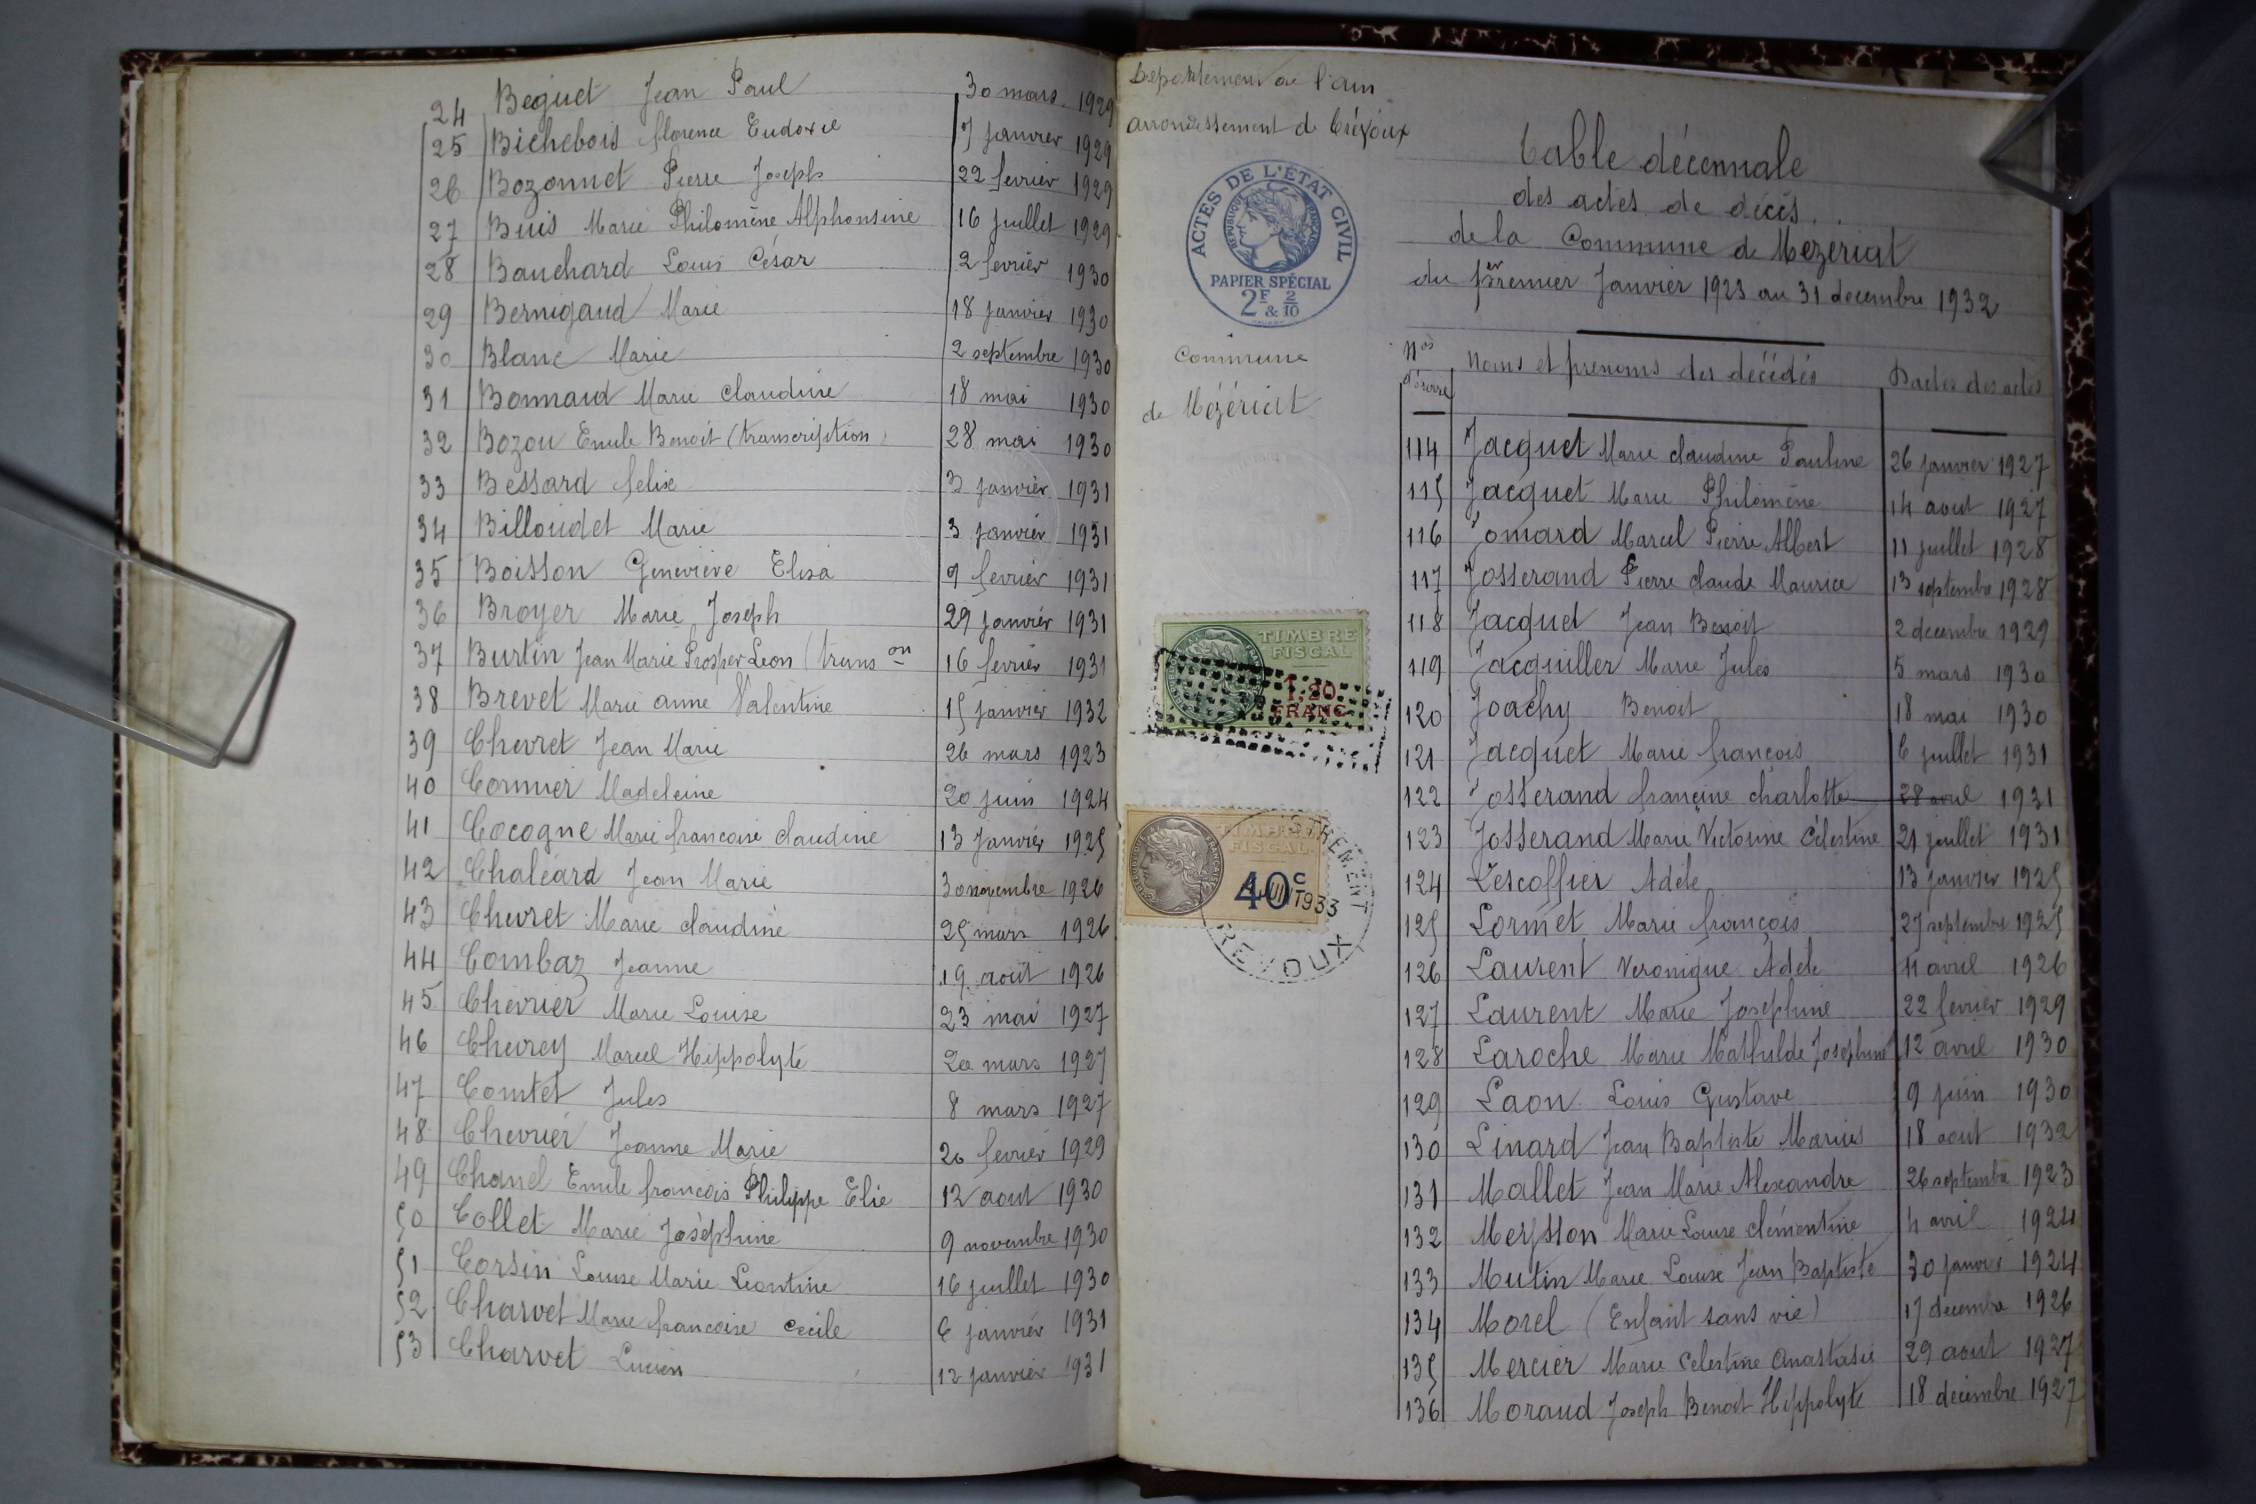 24 Beguet Jean Paul 30 mars 1929
25 Bichebois florence Eudoxie 7 janvier 1929
26 Bozonnet Pierre Joseph 22 fevrier 1929
27 Buis Marie Philomène Alphonsine 16 juillet 1929
28 Bauchard Louis César 2 fevrier 1930
29 Bernigaud Marie 18 janvier 1930
30 Blanc Marie 2 septembre 1930
31 Bonnaud Marie claudine 18 mai 1930
32 Bozou Emile Benoit (transcription) 28 mai 1930
33 Bessard felix 3 janvier 1931
34 Billoudet Marie 3 janvier 1931
35 Boisson Geneviève Elisa 9 fevrier 1931
36 Broyer Marie Joseph 29 janvier 1931
37 Burtin Jean Marie Prosper Leon (trans on 16 fevrier 1931
38 Brevet Marie anne Valentine 15 janvier 1932
39 Chevret Jean Marie 26 mars 1923
40 Cormier Madeleine 20 juin 1924
41 Cocogne Marie francoise claudine 13 Janvier 1925
42 Chaléard Jean Marie 30 novembre 1926
43 Chevret Marie claudine 25 mars 1926
44 Combaz Jeanne 19 août 1926
45 Chevrier Marie Louise 23 mai 1927
46 Chevrey Marcel Hippolyte 20 mars 1927
47 Comtet Jules 8 mars 1927
48 Chevrier Jeanne Marie 20 fevrier 1929
49 Chanel Emile francois Philippe Elie 12 aout 1930
50 Collet Marie Joséphine 9 novembre 1930
51 Corsin Louise Marie Leontine 16 juillet 1930
52 Charvet Marie francoise Cecile 6 janvier 1931
53 Charvet Lucien 12 janvier 1931
Departement de l'ain
arrondissement de Trévoux
ACTES DE L'ÉTAT CIVIL
RÉPUBLIQUE FRANÇAISE
PAPIER SPÉCIAL
2F & 2/10
Commune
de Mézériat
TIMBRE
FISCAL
1,20
FRANC
TIMBRE
FISCAL
40c
1933
TREVOUX
Table décennale
des actes de décès
de la Commune de Mezériat
du premier Janvier 1923 au 31 decembre 1932
Nos d'ordre Noms et prenoms des décédés Dates des actes
114 Jacquet Marie claudine Pauline 26 janvier 1927
115 Jacquet Marie Philomène 14 aout 1927
116 Jomard Marcel Pierre Albert 11 juillet 1928
117 Josserand Pierre claude Maurice 13 septembre 1928
118 Jacquet Jean Benoit 2 decembre 1929
119 Jacquiller Marie Jules 5 mars 1930
120 Joachy Benoit 18 mai 1930
121 Jacquet Marie françois 6 juillet 1931
122 Josserand françine charlotte 28 avril 1931
123 Josserand Marie Victorine Célestine 21 juillet 1931
124 Lescoffier Adèle 13 janvier 1925
125 Lormet Marie françois 27 septembre 1925
126 Laurent Veronique Adele 11 avril 1926
127 Laurent Marie Josephine 22 fevrier 1929
128 Laroche Marie Mathilde Josephine 12 avril 1930
129 Laon Louis Gustave 9 juin 1930
130 Linard Jean Baptiste Marius 18 aout 1932
131 Mallet Jean Marie Alexandre 26 septembre 1923
132 Meysson Marie Louise clémentine 4 avril 1924
133 Mutin Marie Louise Jean Baptiste 30 janvier 1924
134 Morel (Enfant sans vie) 17 decembre 1926
135 Mercier Marie Celestine Anastasie 29 aout 1927
136 Moraud Joseph Benoit Hippolyte 18 décembre 1927